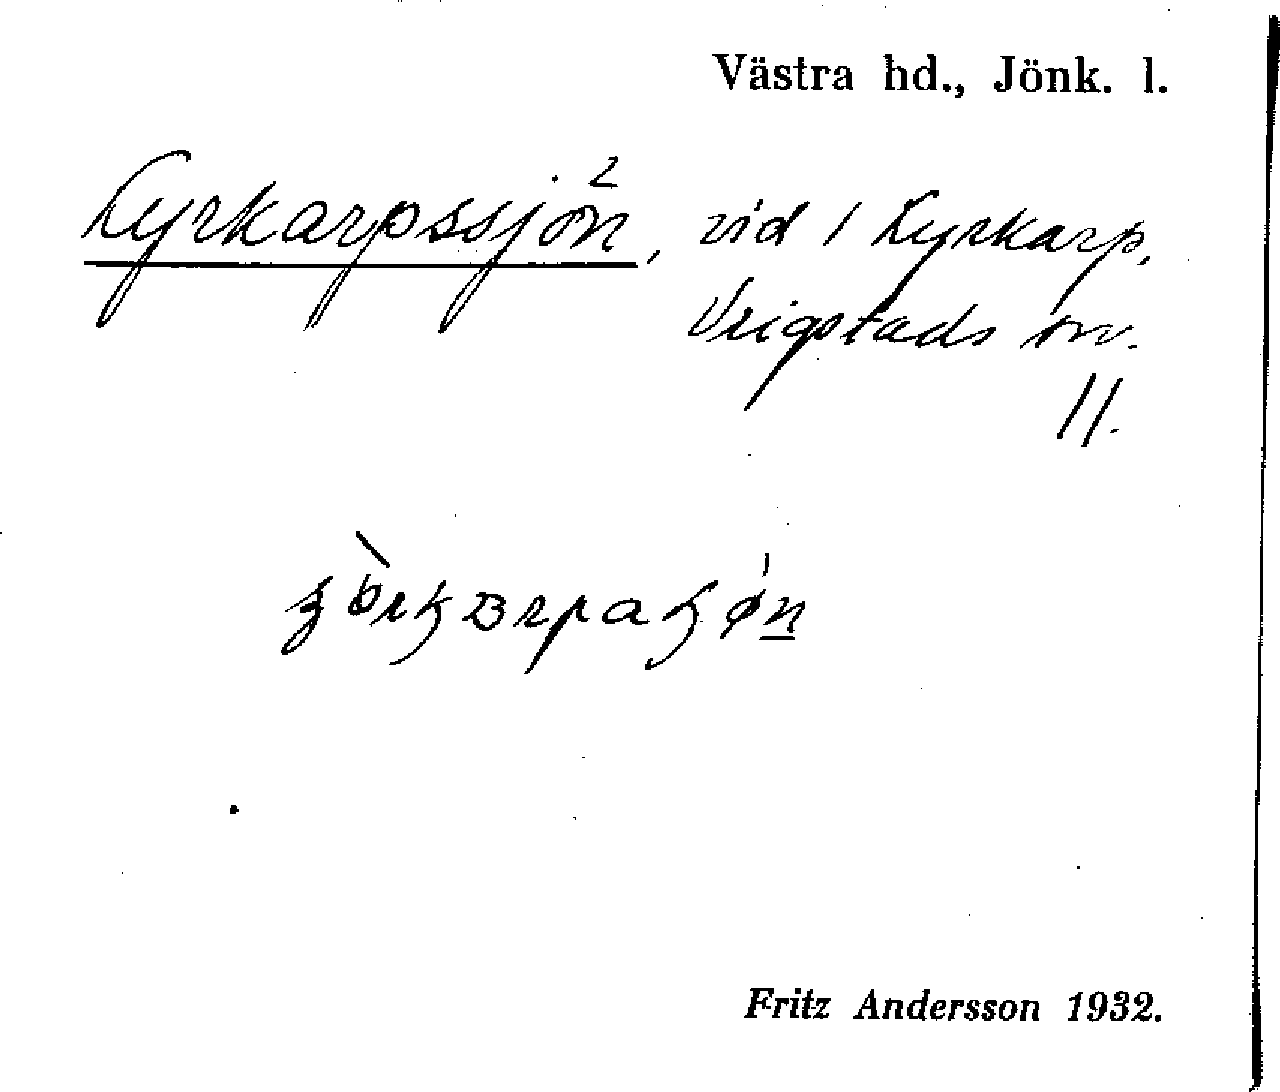 Västra hd., Jönk. l.
Kyrkarpssjön², vid 1 Kyrkarp,
Vrigstads sn.
11.
Fritz Andersson 1932.